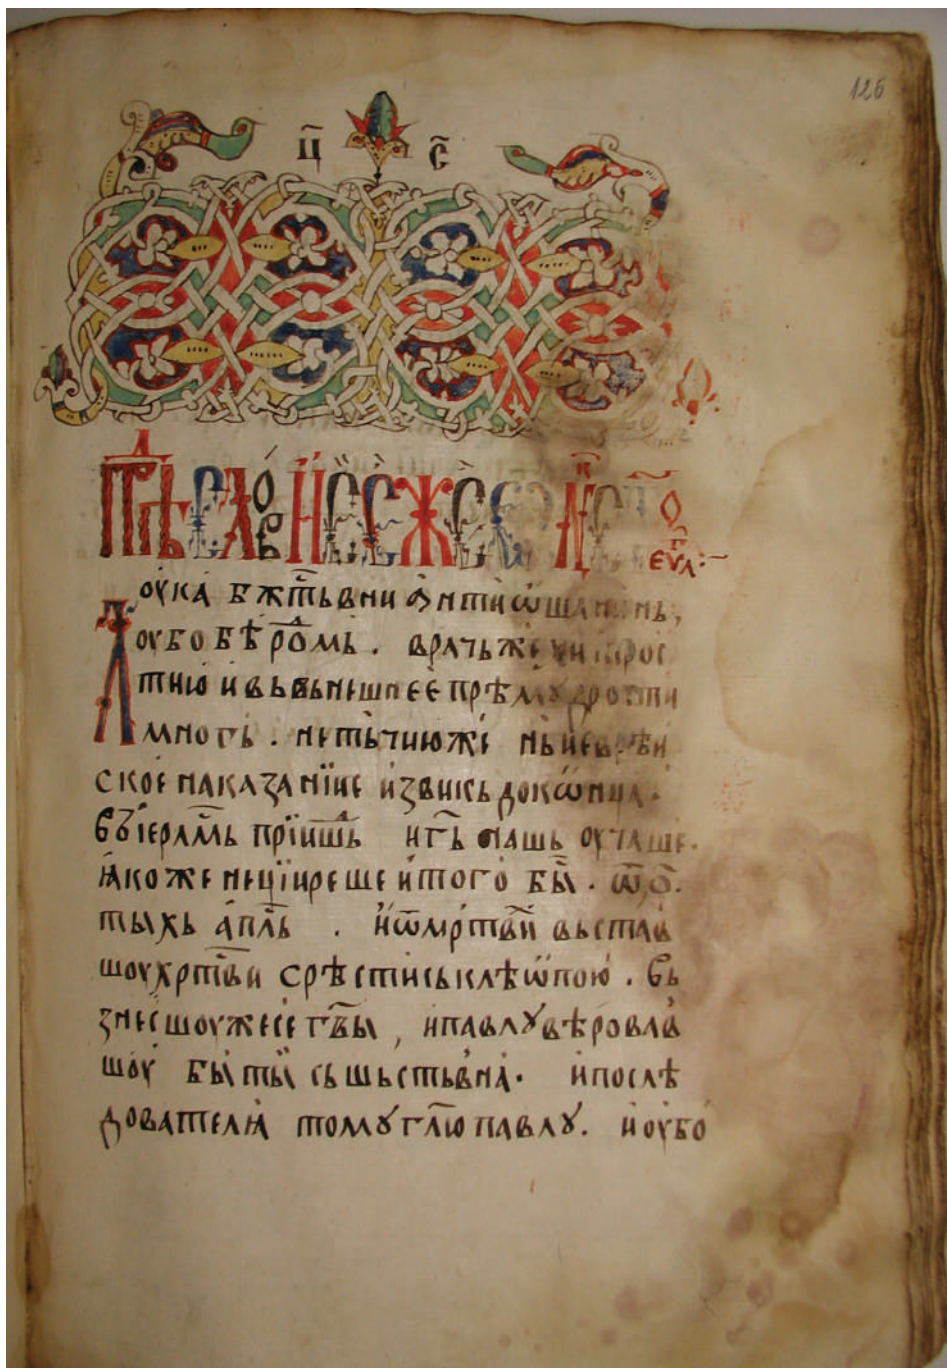 126
ц҃ с҃
Прѣⷣсловїе еже ѿ лꙋⷦ ст҃го
еѵⷢл:~
Лоука бжⷭтьвни антиѡшанинь,
оубо бѣ рѡⷣмь . врачьже хитрос
тию и вьвьнешнеє прѣмꙋдрости
многь . не тьчиюже нь и еврѣи
скоє наказанїиє извикь доконца .
Вьїерⷭлмь прїишⷣь и гⷭь нашь оучаше .
ꙗкоже неции реше и того быⷭ . ѿ о҃ .
тыхь апⷭль . и ѿ мрⷮтвїи вьстав
шоу хрⷭтви срѣстись клеѡпою . Вь
знесшоужесе гⷭвы , и павлꙋ вѣровав
шоу быти сьшьствна . и послѣ
дователꙗ томꙋ гл҃ю павлꙋ . и оубо